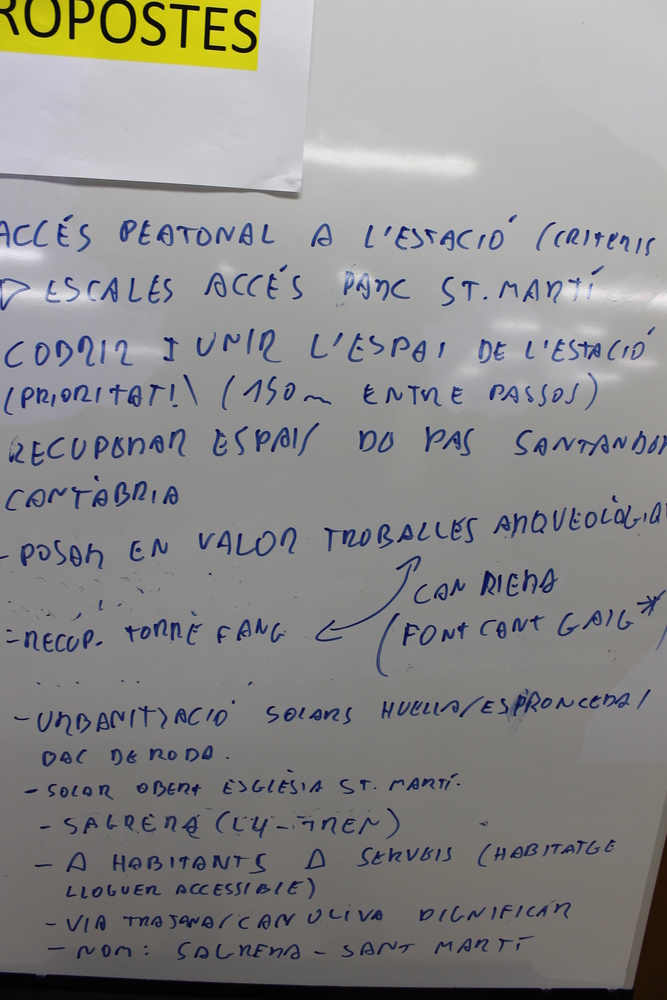 ROPOSTES
ACCÉS PEATONAL A L'ESTACIÓ (CRITERIS
▷ ESCALES ACCÉS PARC ST. MARTÍ
COBRIR I UNIR L'ESPAI DE L'ESTACIÓ
(PRIORITAT!) (150m ENTRE PASSOS)
RECUPERAR ESPAIS DO PAS SANTANDER
CANTÀBRIA
- POSAR EN VALOR TROBALLES ARQUEOLÒGIQ
CAN RIERA
= RECUP. TORRE FANG
(FONT CANT GAIG*
- URBANITZACIÓ SOLARS HUELVA/ESPRONCEDA/
BAC DE RODA.
- SOLAR OBERT ESGLÈSIA ST. MARTÍ.
- SAGRERA (L4 - TREN)
- Δ HABITANTS Δ SERVEIS (HABITATGE
LLOGUER ACCESSIBLE)
- VIA TRAJANA/CAN OLIVA DIGNIFICAR
- NOM: SAGRERA - SANT MARTÍ